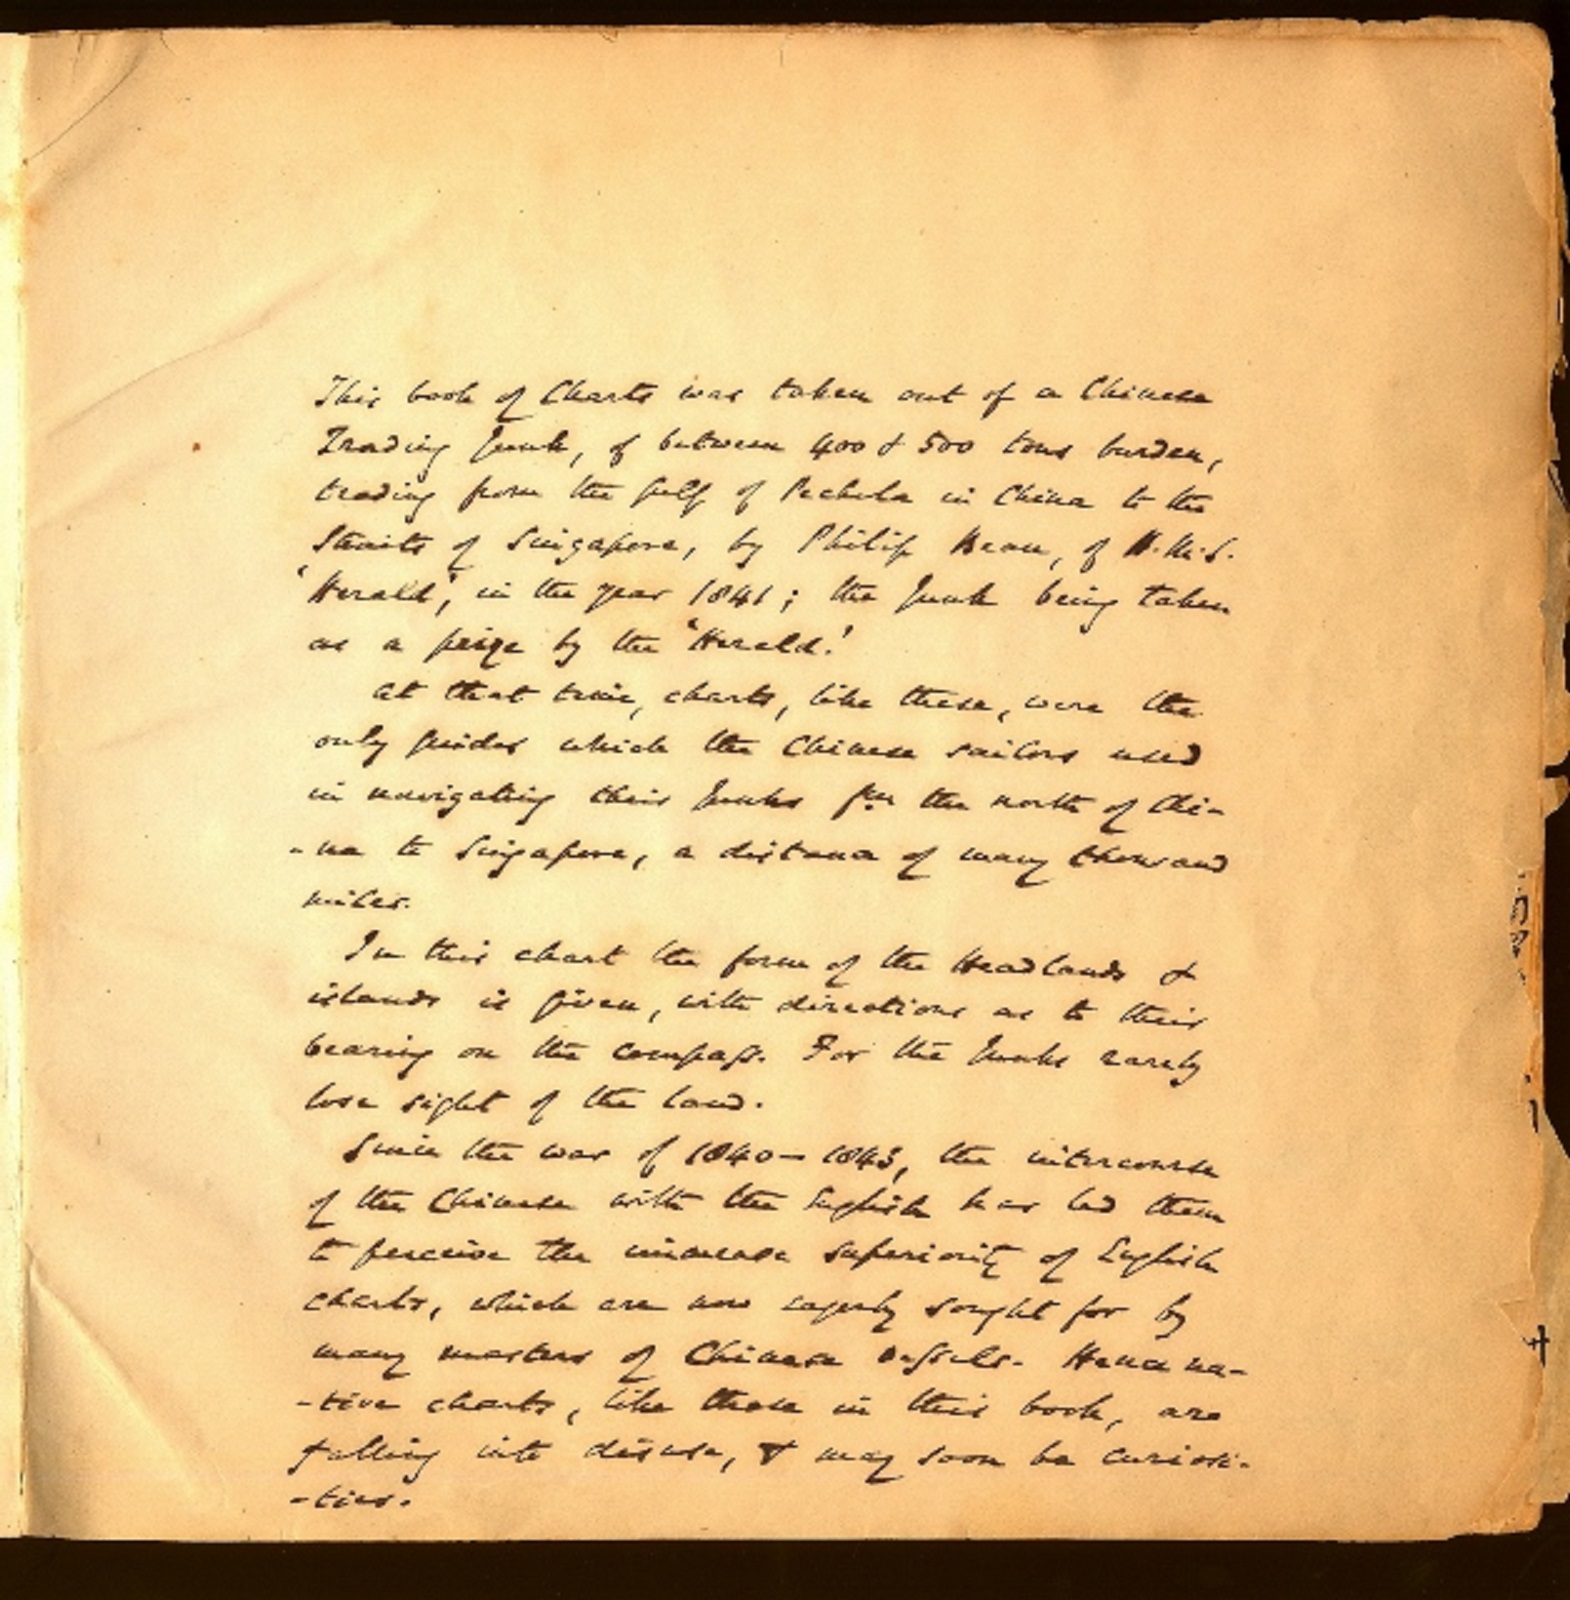 This book of Charts was taken out of a Chinese
Trading Junk, of between 400 & 500 tons burden,
trading from the Gulf of Pechela in China to the
Straits of Singapore, by Philip Bean, of H.M.S.
'Herald', in the year 1841; the Junk being taken
as a prize by the 'Herald.'
At that time, charts, like these, were the
only guides which the Chinese sailors used
in navigating their Junks from the north of Chi-
-na to Singapore, a distance of many thousand
miles.
In this chart the form of the Headlands &
islands is given, with directions as to their
bearing on the compass. For the Junks rarely
lose sight of the land.
Since the war of 1840-1843, the intercourse
of the Chinese with the English has led them
to perceive the immense superiority of English
charts, which are now eagerly sought for by
many masters of Chinese vessels. Hence na-
-tive charts, like those in this book, are
falling into disuse, & may soon be curiosi-
-ties.